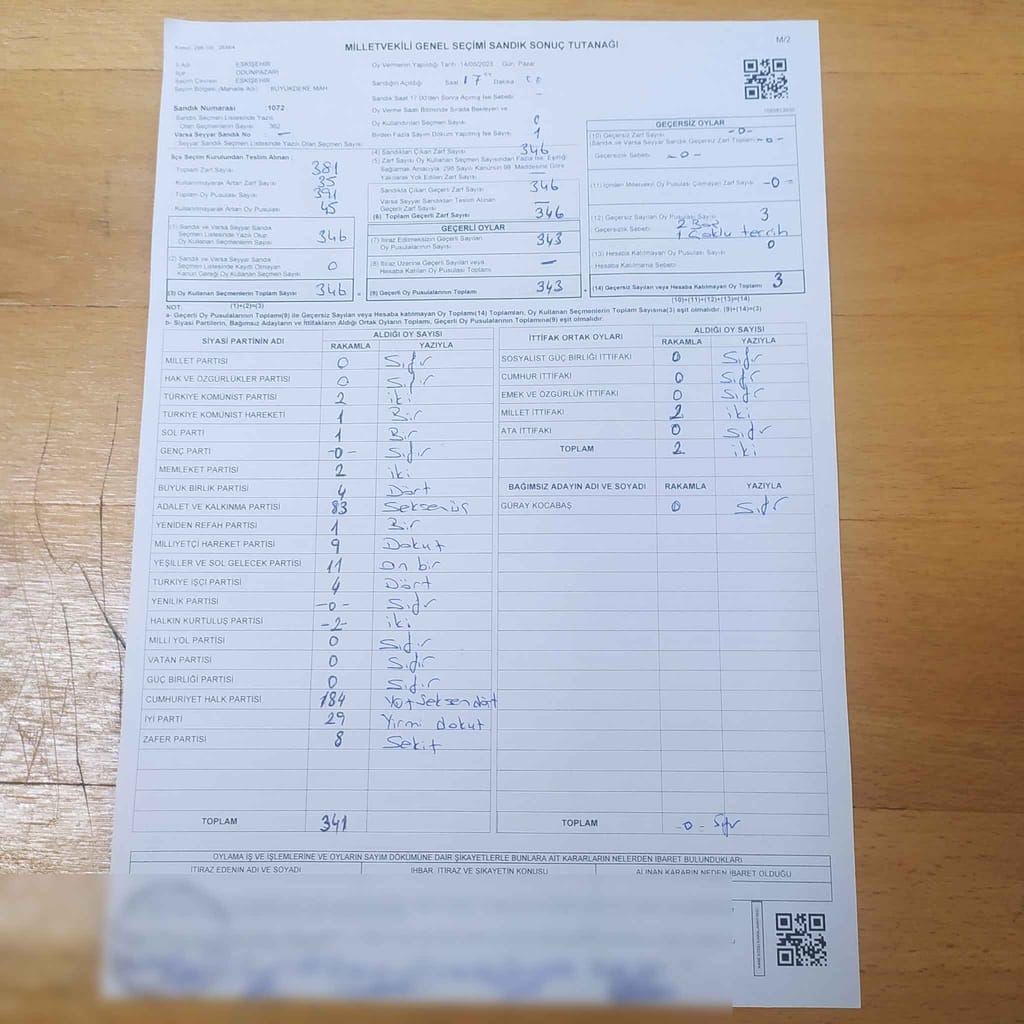 MİLLETVEKİLİ GENEL SEÇİMİ SANDIK SONUÇ TUTANAĞI
M/2
İl Adı : ESKİŞEHİR
İlçe : ODUNPAZARI
Seçim Çevresi : ESKİŞEHİR
Seçim Bölgesi (Mahalle Adı) : BÜYÜKDERE MAH
Oy Vermenin Yapıldığı Tarih :14/05/2023 Gün: Pazar
Sandığın Açıldığı Saat 17 Dakika
Sandık Numarası :1072
Sandık Seçmen Listesinde Yazılı
Olan Seçmenlerin Sayısı 362
Varsa Seyyar Sandık No —
Seyyar Sandık Seçmen Listesinde Yazılı Olan Seçmen Sayısı
Sandık Saat 17.00'den Sonra Açılmış İse Sebebi —
Oy Verme Saati Bitiminde Sırada Bekleyen ve
Oy Kullandırılan Seçmen Sayısı 0
Birden Fazla Sayım Döküm Yapılmış İse Sayısı 1
İlçe Seçim Kurulundan Teslim Alınan :
Toplam Zarf Sayısı 381
Kullanılmayarak Artan Zarf Sayısı 35
Toplam Oy Pusulası Sayısı 391
Kullanılmayarak Artan Oy Pusulası 45
(1) Sandık ve Varsa Seyyar Sandık
Seçmen Listesinde Yazılı Olup
Oy Kullanan Seçmenlerin Sayısı 346
(2) Sandık ve Varsa Seyyar Sandık
Seçmen Listesinde Kaydı Olmayan
Kanun Gereği Oy Kullanan Seçmen Sayısı 0
(3) Oy Kullanan Seçmenlerin Toplam Sayısı 346
(1)+(2)=(3)
(4) Sandıktan Çıkan Zarf Sayısı 346
(5) Zarf Sayısı Oy Kullanan Seçmen Sayısından Fazla İse, Eşitliği
Sağlamak Amacıyla, 298 Sayılı Kanunun 98. Maddesine Göre
Yakılarak Yok Edilen Zarf Sayısı
Sandıkta Çıkan Geçerli Zarf Sayısı 346
Varsa Seyyar Sandıktan Teslim Alınan
Geçerli Zarf Sayısı —
(6) Toplam Geçerli Zarf Sayısı 346
GEÇERLİ OYLAR
(7) İtiraz Edilmeksizin Geçerli Sayılan
Oy Pusulalarının Sayısı 343
(8) İtiraz Üzerine Geçerli Sayılan veya
Hesaba Katılan Oy Pusulası Toplamı —
(9) Geçerli Oy Pusulalarının Toplamı 343
GEÇERSİZ OYLAR
(10) Geçersiz Zarf Sayısı -0-
(Sandık ve Varsa Seyyar Sandık Zarf Toplamı) -0-
Geçersizlik Sebebi -0-
(11) İçinden Milletvekili Oy Pusulası Çıkmayan Zarf Sayısı -0-
(12) Geçersiz Sayılan Oy Pusulası Sayısı 3
Geçersizlik Sebebi 2 Boş
1 Çoklu tercih
(13) Hesaba Katılmayan Oy Pusulası Sayısı 0
Hesaba Katılmama Sebebi
(14) Geçersiz Sayılan veya Hesaba Katılmayan Oy Toplamı 3
(10)+(11)+(12)+(13)=(14)
NOT:
a- Geçerli Oy Pusulalarının Toplamı(9) ile Geçersiz Sayılan veya Hesaba katılmayan Oy Toplamı(14) Toplamları, Oy Kullanan Seçmenlerin Toplam Sayısına(3) eşit olmalıdır. (9)+(14)=(3)
b- Siyasi Partilerin, Bağımsız Adayların ve İttifakların Aldığı Ortak Oyların Toplamı, Geçerli Oy Pusulalarının Toplamına(9) eşit olmalıdır.
SİYASİ PARTİNİN ADI ALDIĞI OY SAYISI
RAKAMLA YAZIYLA
MİLLET PARTİSİ 0 Sıfır
HAK VE ÖZGÜRLÜKLER PARTİSİ 0 Sıfır
TÜRKİYE KOMÜNİST PARTİSİ 2 iki
TÜRKİYE KOMÜNİST HAREKETİ 1 Bir
SOL PARTİ 1 Bir
GENÇ PARTİ -0- Sıfır
MEMLEKET PARTİSİ 2 iki
BÜYÜK BİRLİK PARTİSİ 4 Dört
ADALET VE KALKINMA PARTİSİ 83 Seksenüç
YENİDEN REFAH PARTİSİ 1 Bir
MİLLİYETÇİ HAREKET PARTİSİ 9 Dokuz
YEŞİLLER VE SOL GELECEK PARTİSİ 11 On bir
TÜRKİYE İŞÇİ PARTİSİ 4 Dört
YENİLİK PARTİSİ -0- Sıfır
HALKIN KURTULUŞ PARTİSİ -2- iki
MİLLİ YOL PARTİSİ 0 Sıfır
VATAN PARTİSİ 0 Sıfır
GÜÇ BİRLİĞİ PARTİSİ 0 Sıfır
CUMHURİYET HALK PARTİSİ 184 YüzSeksendört
İYİ PARTİ 29 Yirmi dokuz
ZAFER PARTİSİ 8 Sekiz
TOPLAM 341
İTTİFAK ORTAK OYLARI ALDIĞI OY SAYISI
RAKAMLA YAZIYLA
SOSYALİST GÜÇ BİRLİĞİ İTTİFAKI 0 Sıfır
CUMHUR İTTİFAKI 0 Sıfır
EMEK VE ÖZGÜRLÜK İTTİFAKI 0 Sıfır
MİLLET İTTİFAKI 2 iki
ATA İTTİFAKI 0 Sıfır
TOPLAM 2 iki
BAĞIMSIZ ADAYIN ADI VE SOYADI RAKAMLA YAZIYLA
GÜRAY KOCABAŞ 0 Sıfır
TOPLAM -0- Sıfır
OYLAMA İŞ VE İŞLEMLERİNE VE OYLARIN SAYIM DÖKÜMÜNE DAİR ŞİKAYETLERLE BUNLARA AİT KARARLARIN NELERDEN İBARET BULUNDUKLARI
İTİRAZ EDENİN ADI VE SOYADI İHBAR, İTİRAZ VE ŞİKAYETİN KONUSU ALINAN KARARIN NEDEN İBARET OLDUĞU